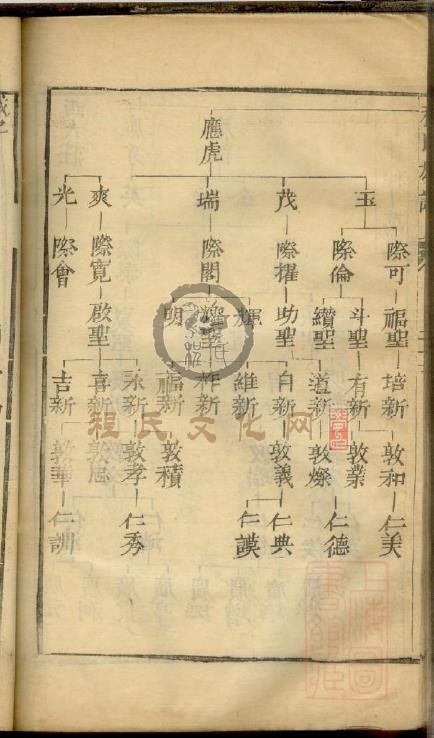 應虎
玉 茂 瑞 爽 光
際可 際倫 際擢 際閣 際寬 際會
福聖 斗聖 纘聖 助聖 輝 耀聖 明 啟聖
培新 有新 道新 自新 維新 作新 福新 永新 喜新 吉新
敦和 敦業 敦燦 敦義 敦積 敦孝 敦志 敦華
仁美 仁德 仁典 仁謨 仁秀 仁訓
程氏文化网